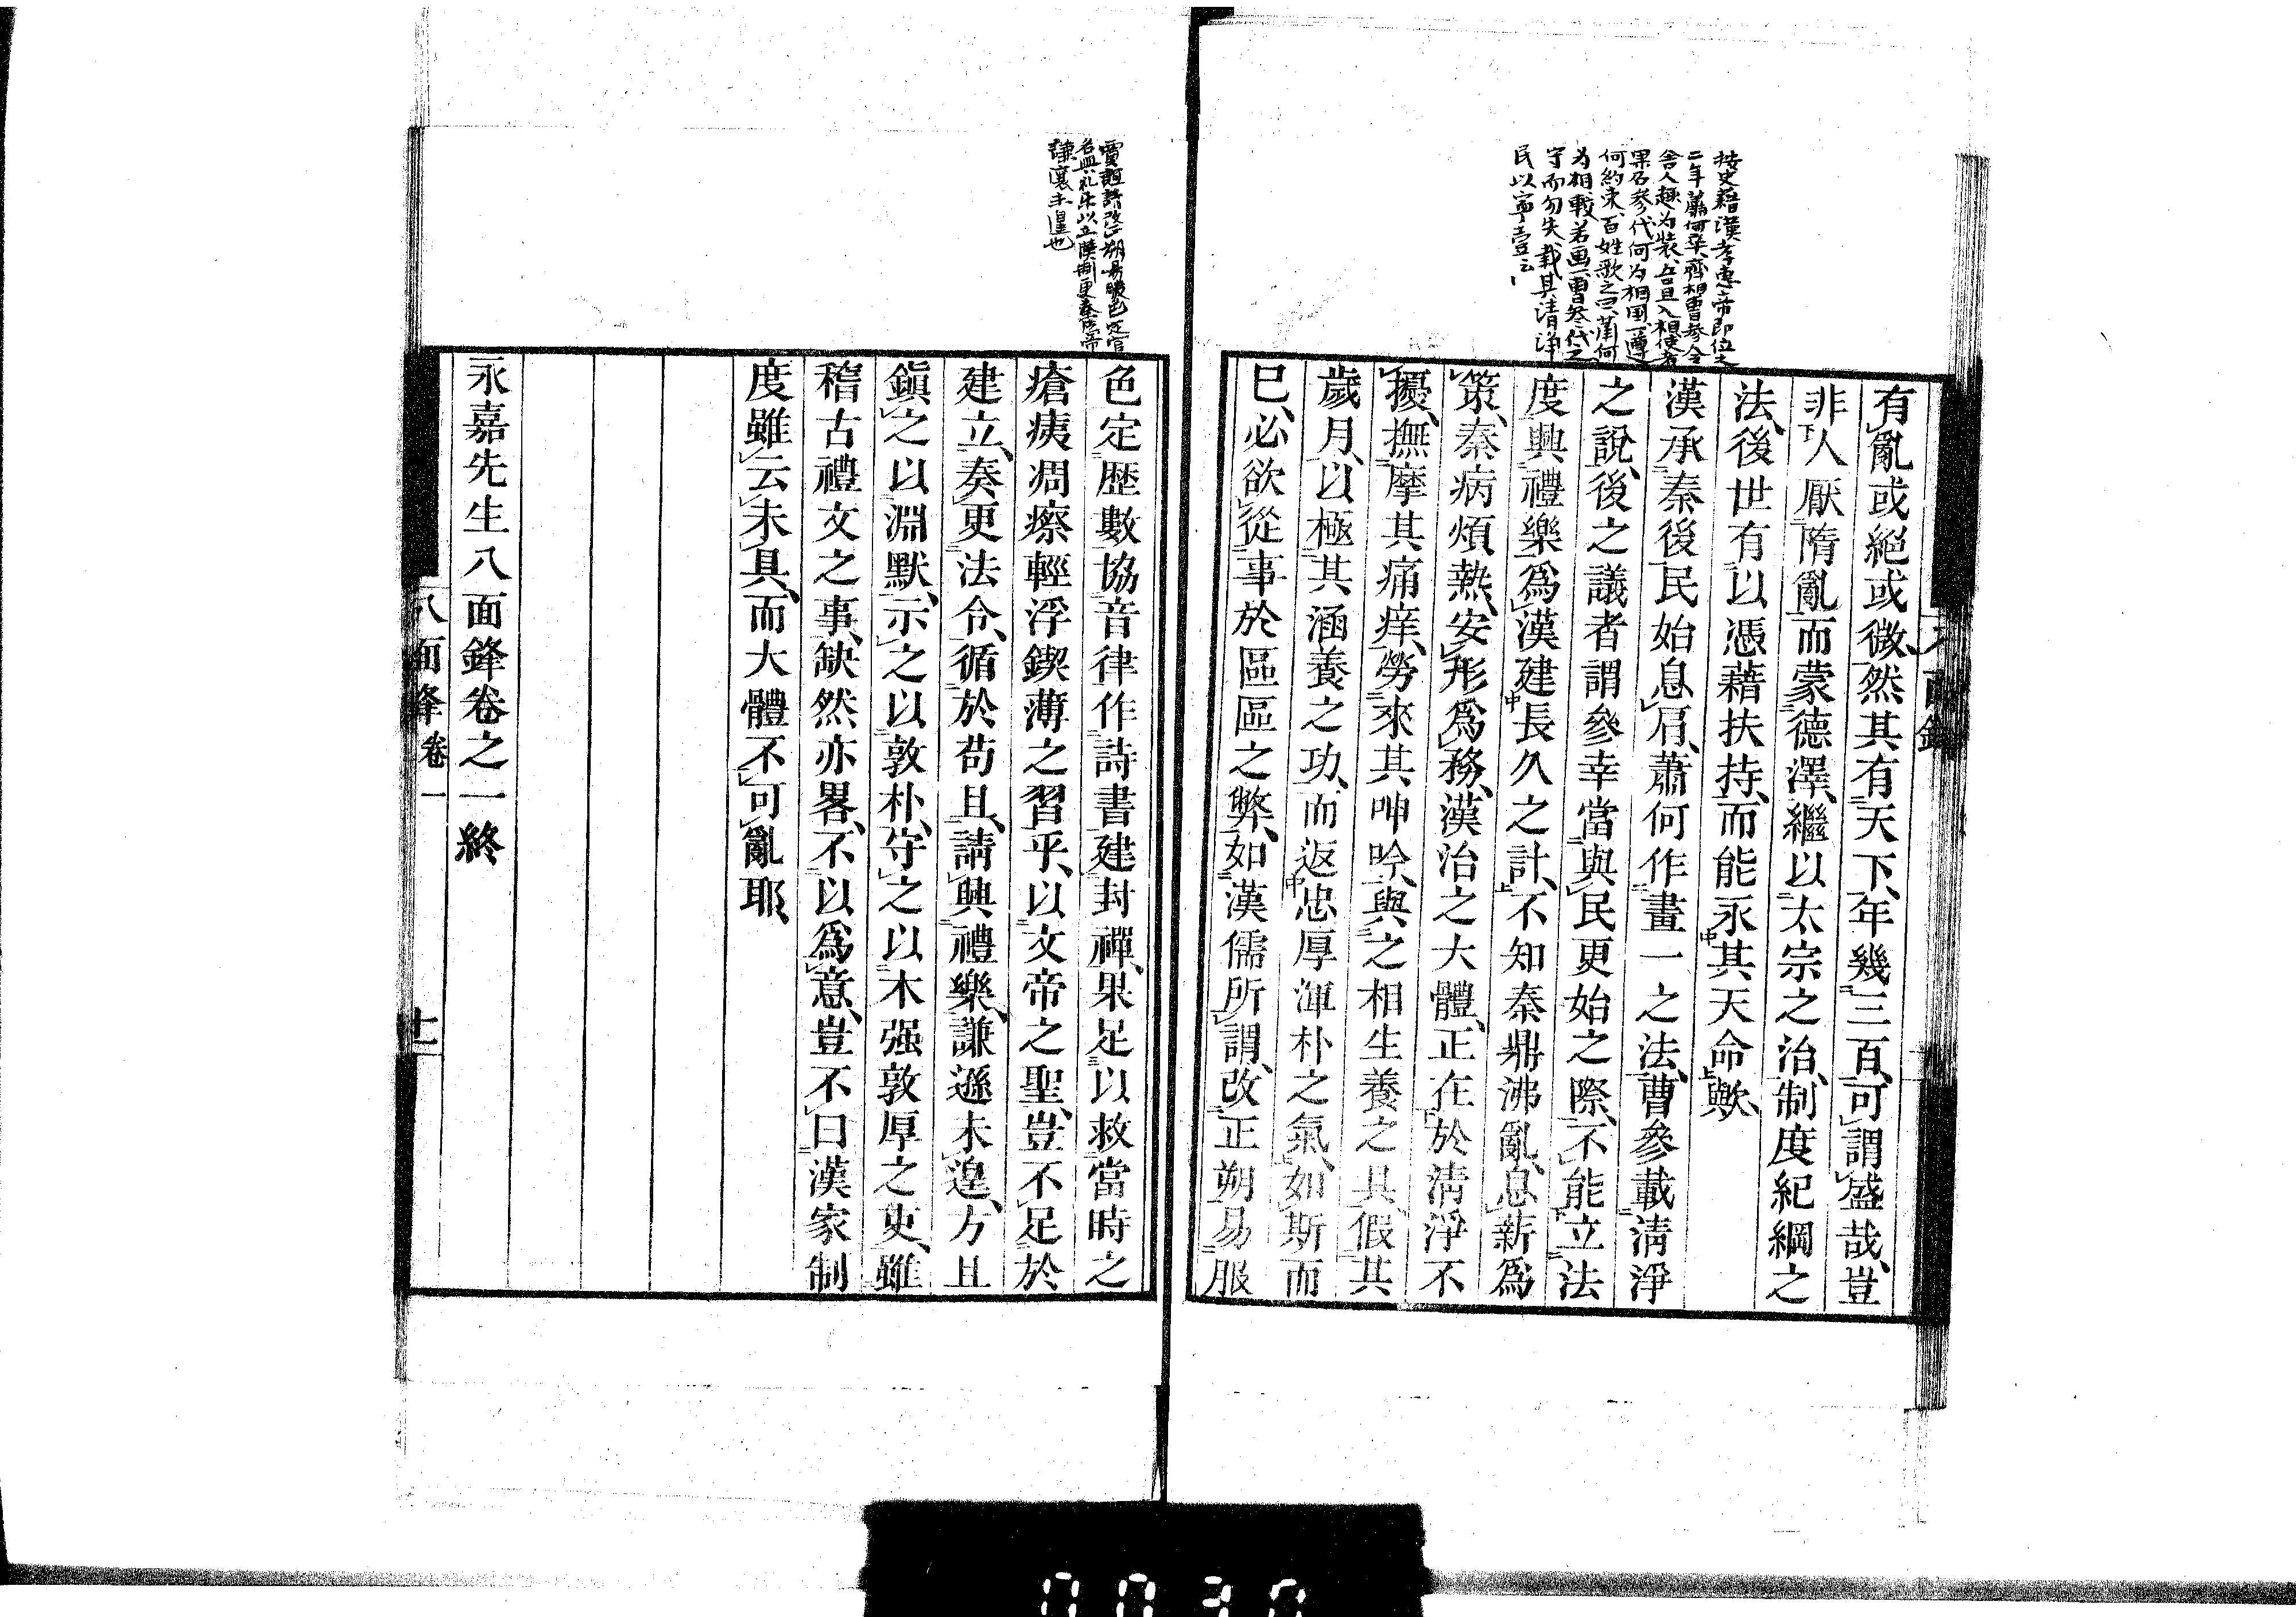 按史籍漢孝惠帝即位之
二年蕭何卒齊相曹參令
舍人趣为裝吾且入相使者
果召參代何为相國一遵
何約束百姓歌之曰蕭何
为相較若画一曹参代之
守而勿失載其清淨
民以寧壹云
有亂或絕或微然其有天下年幾三百可謂盛哉豈
非人厭隋亂而蒙德澤繼以太宗之治制度紀綱之
法後世有以憑藉扶持而能永其天命歟
漢承秦後民始息肩蕭何作畫一之法曹參載清淨
之說後之議者謂參幸當與民更始之際不能立法
度興禮樂爲漢建長久之計不知秦鼎沸亂息薪爲
策秦病煩熱安形爲務漢治之大體正在於清淨不
擾撫摩其痛痒勞來其呻吟與之相生養之具假其
歲月以極其涵養之功而返忠厚渾朴之氣如斯而
已必欲從事於區區之弊如漢儒所謂改正朔易服
賈誼請改正朔易服色定官
名興礼樂以立漢制更秦法帝
謙讓未遑也
色定歷數協音律作詩書建封禪果足以救當時之
瘡痍凋瘵輕浮鍥薄之習乎以文帝之聖豈不足於
建立奏更法令循於苟且請興禮樂謙遜未遑方且
鎭之以淵默示之以敦朴守之以木强敦厚之吏雖
稽古禮文之事缺然亦畧不以爲意豈不曰漢家制
度雖云未具而大體不可亂耶
永嘉先生八面鋒卷之一終
八面鋒卷一
十一
0030